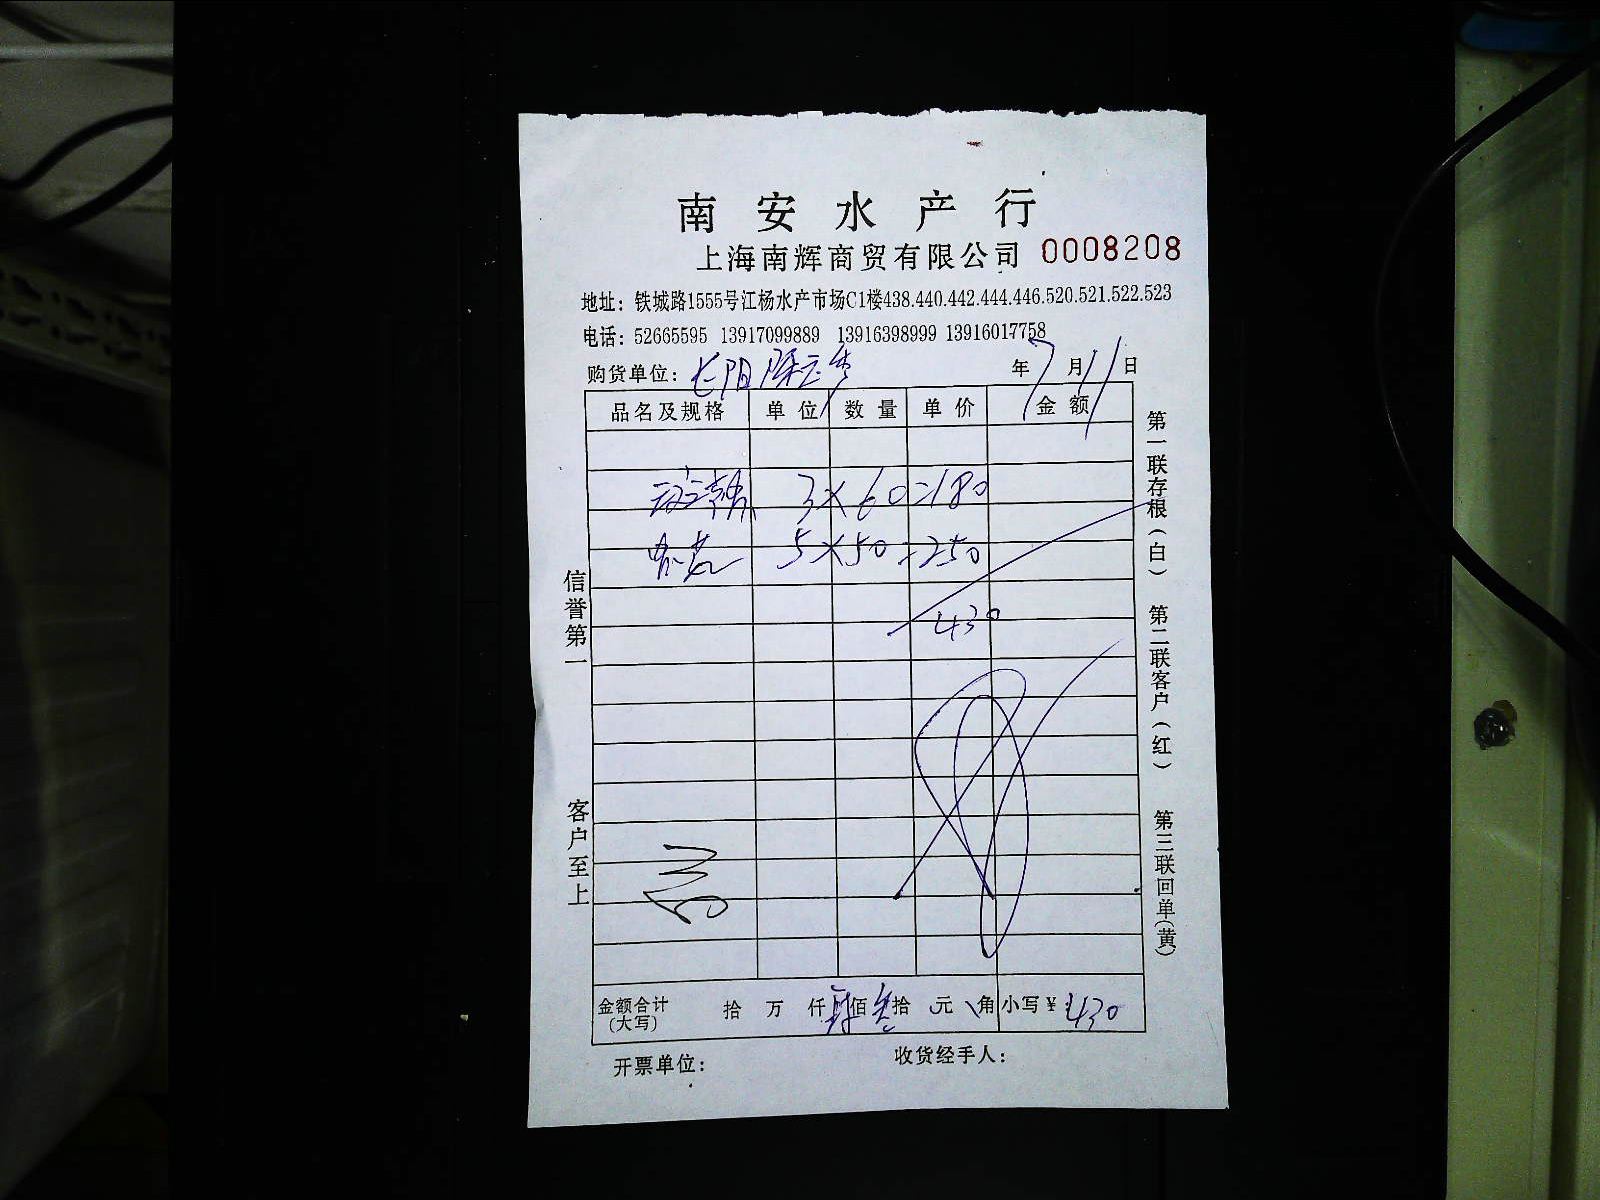 南安水产行
上海南辉商贸有限公司 0008208
地址：铁城路1555号江杨水产市场C1楼438.440.442.444.446.520.521.522.523
电话：52665595 13917099889 13916398999 13916017758
购货单位： 年7月11日
品名及规格 单位 数量 单价 金额
3×60=180
5×50=250
430
金额合计（大写） 拾 万 仟肆佰叁拾 元 角 小写￥：430
开票单位： 收货经手人：
信誉第一 客户至上
第一联存根（白） 第二联客户（红） 第三联回单（黄）